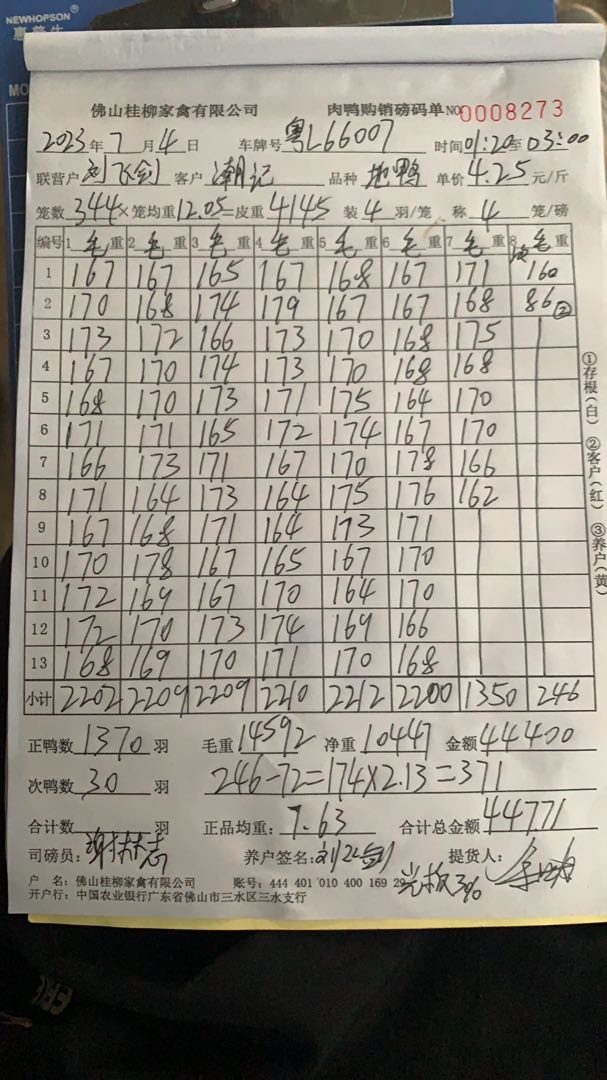 NEWHOPSON®
佛山桂柳家禽有限公司 肉鸭购销磅码单 NO 0008273
2023年7月4日 车牌号 粤L66007 时间 01:20至03:00
联营户 刘飞剑 客户 潮记 品种 地鸭 单价 4.25 元/斤
笼数 344 × 笼均重 12.05 = 皮重 4145 装 4 羽/笼 称 4 笼/磅
编号 1 毛 重 2 毛 重 3 毛 重 4 毛 重 5 毛 重 6 毛 重 7 毛 重 8 毛 重
1 167 167 165 167 168 167 171 160
2 170 168 174 179 167 167 168 86 ②
3 173 172 166 173 170 168 175
4 167 170 174 173 170 168 168
5 168 170 173 171 175 164 170
6 171 171 165 172 174 167 170
7 166 173 171 167 170 178 166
8 171 164 173 164 175 176 162
9 167 168 171 164 173 171
10 170 178 167 165 167 170
11 172 169 167 170 164 170
12 172 170 173 174 169 166
13 168 169 170 171 170 168
小计 2202 2209 2209 2210 2212 2200 1350 246
①存根(白) ②客户(红) ③养户(黄)
正鸭数 1370 羽 毛重 14592 净重 10447 金额 44400
次鸭数 30 羽 246-72=174×2.13=371
合计数 羽 正品均重: 7.63 合计总金额 44771
司磅员: 谢林志 养户签名: 刘飞剑 提货人:
户 名: 佛山桂柳家禽有限公司 账号: 444 401 010 400 169 29 光板3%
开户行: 中国农业银行广东省佛山市三水区三水支行